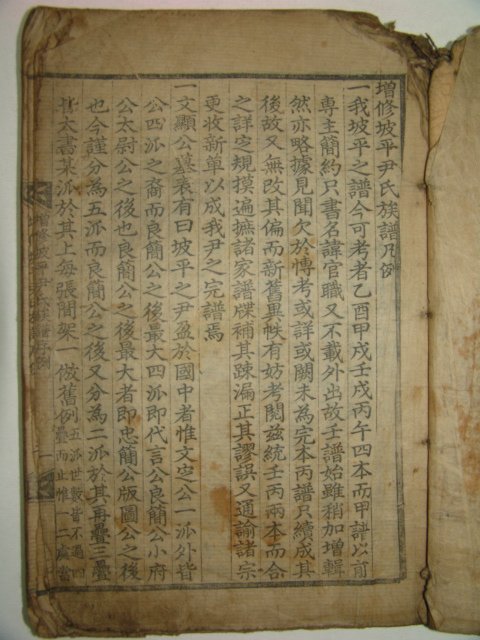 增修坡平尹氏族譜凡例
一我坡平之譜今可考者乙酉甲戌壬戌丙午四本而甲譜以前
專主簡約只書名諱官職又不載外出故壬譜始雖稍加增輯
然亦略據見聞欠於博考或詳或闕未爲完本丙譜只續成其
後故又無改其偏而新舊異帙有妨考閱茲統壬丙兩本而合
之詳定規摸遍摭諸家譜牒補其踈漏正其謬誤又通諭諸宗
更收新單以成我尹之完譜焉
一文顯公墓表有曰坡平之尹盈於國中者惟文定公一派外皆
公四派之裔而良簡公之後最大四派即代言公良簡公小府
公太尉公之後也良簡公之後最大者即忠簡公版圖公之後
也今謹分爲五派而良簡公之後又分爲二派於其再疊三疊
皆大書某派於其上每張間架一倣舊例五派世數皆不過四
疊而止惟一二處
增修坡平尹氏族譜凡例
一